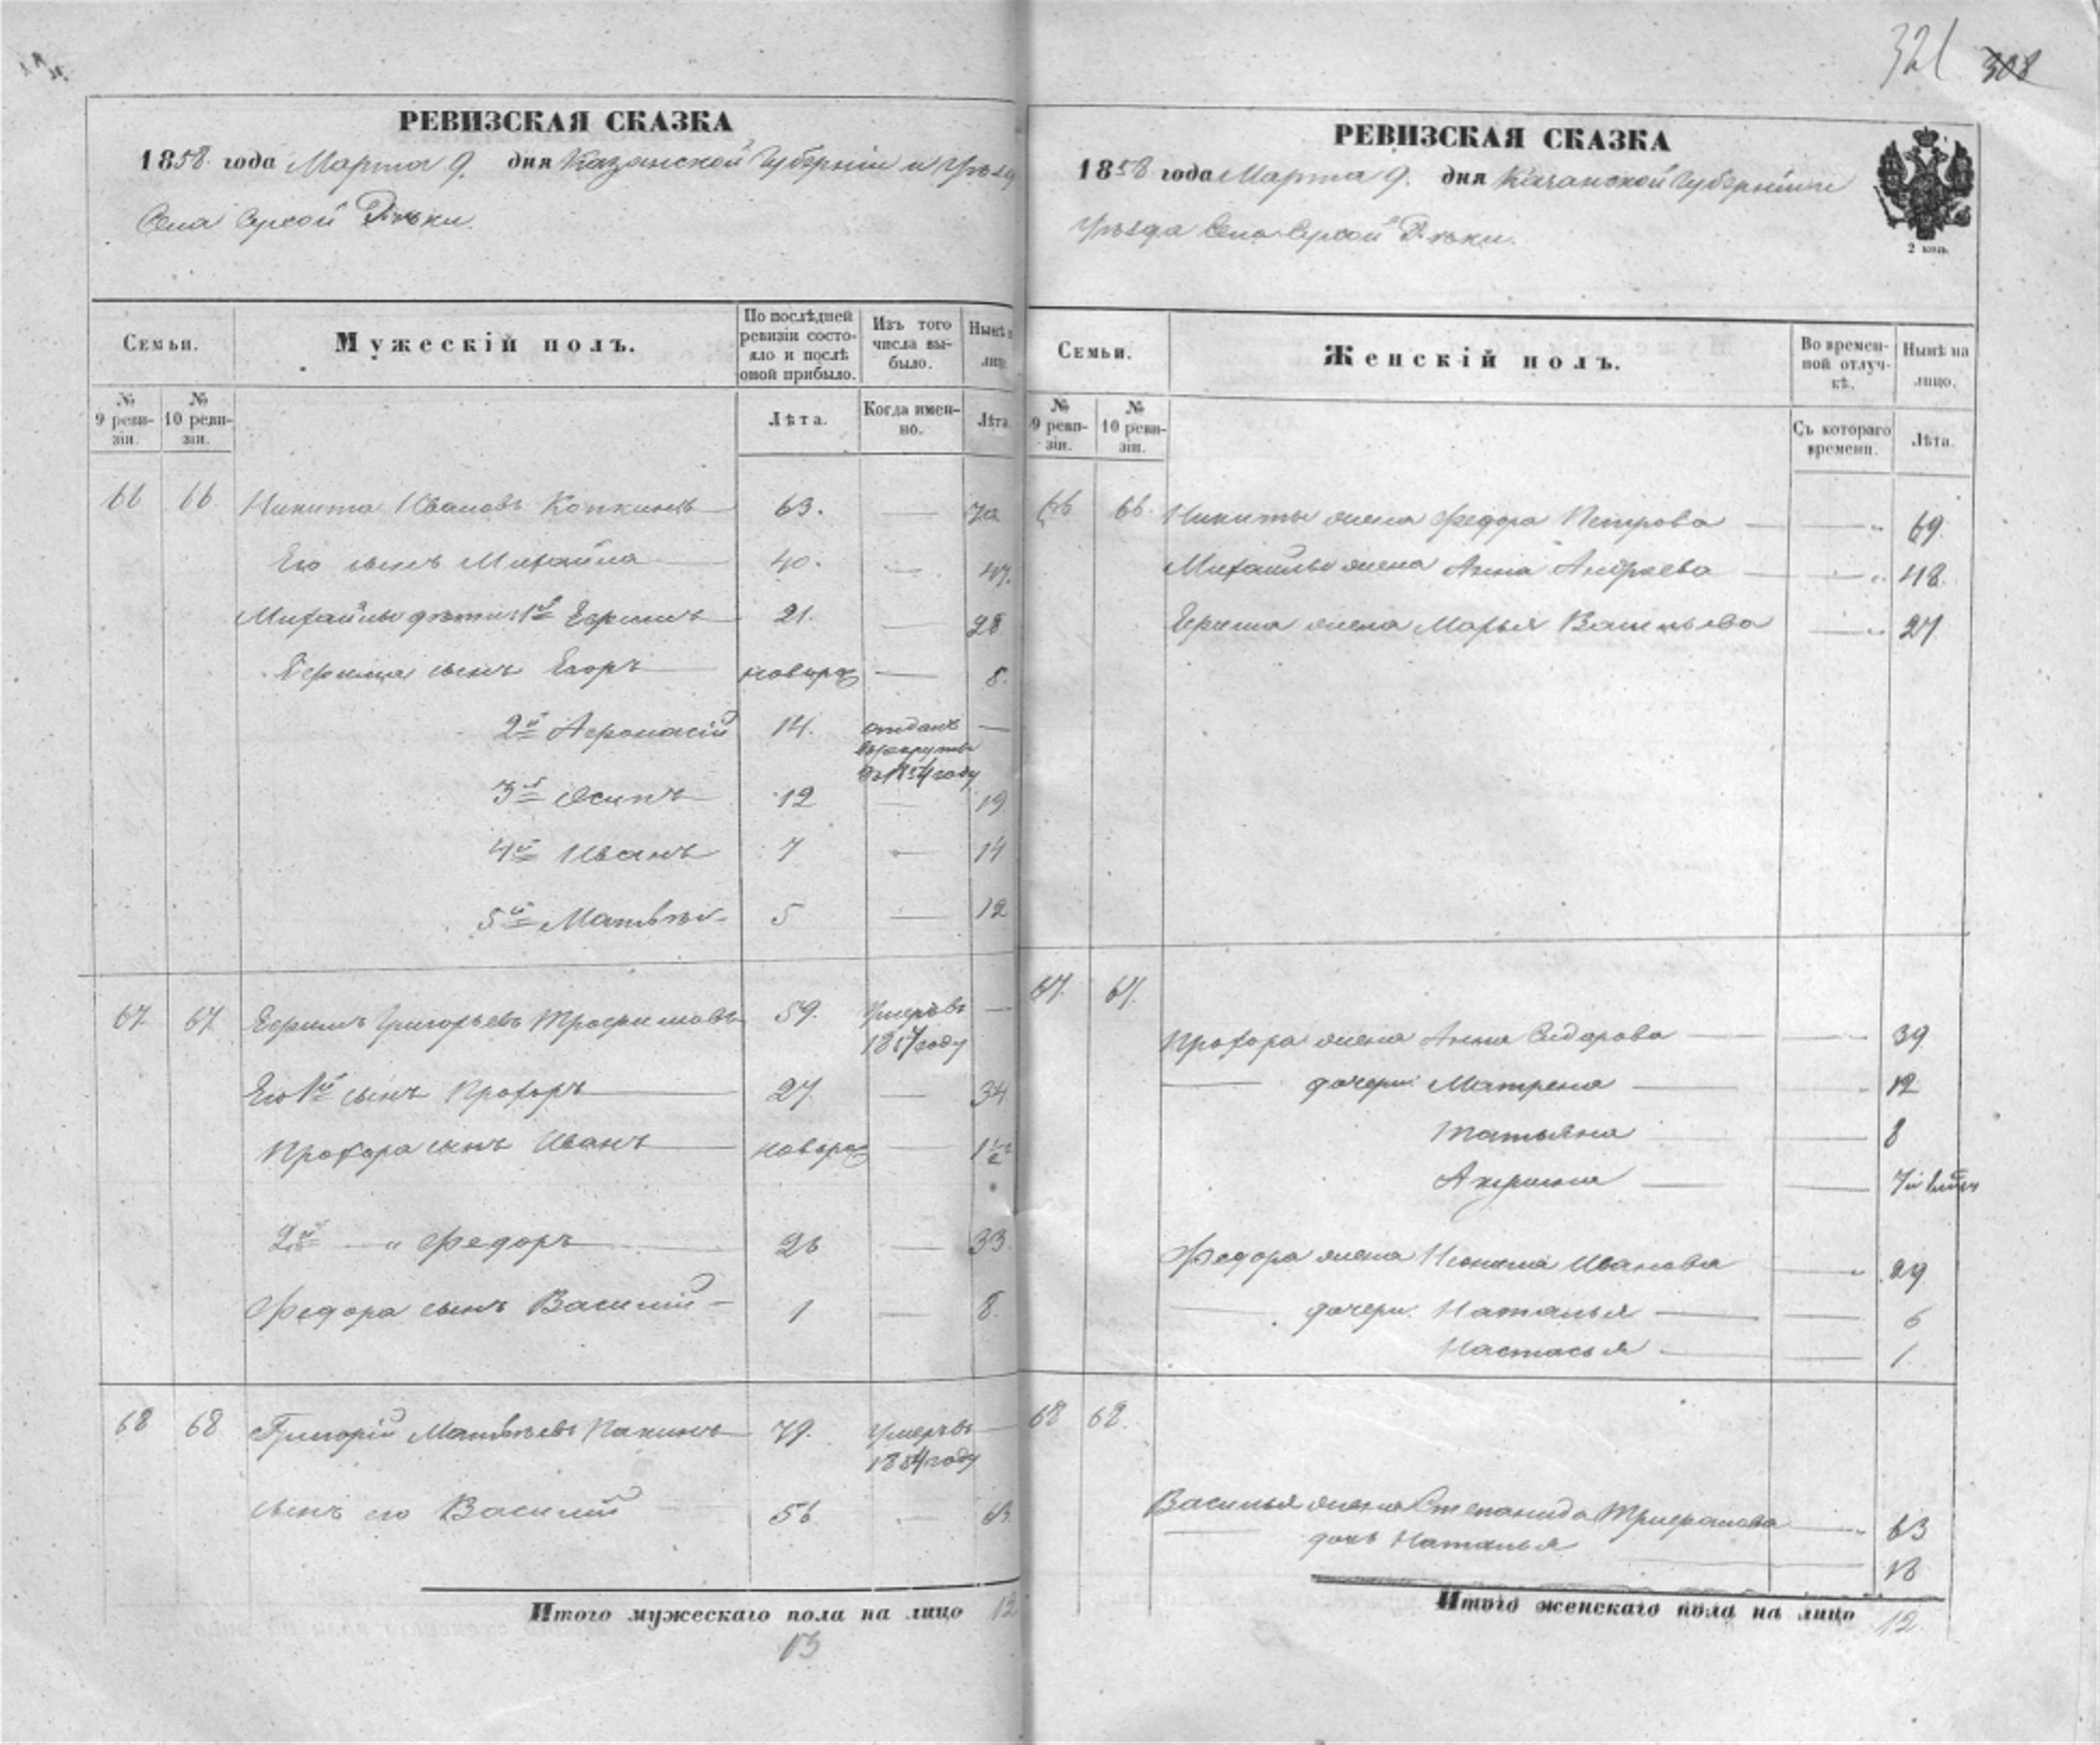 321 308
РЕВИЗСКАЯ СКАЗКА
1858 года Марта 9. дня Казанской Губерніи и Уѣзда
Села Сухой Рѣки.
Семьи.
Мужескій полъ.
По послѣдней ревизіи состояло и послѣ оной прибыло.
Изъ того числа выбыло.
Нынѣ
лицо
№ 9 ревизіи.
№ 10 ревизіи.
Лѣта.
Когда именно.
Лѣта
66 66 Никита Ивановъ Копкинъ 63. — 70
Его сынъ Михайла 40. — 47.
Михайлы дѣти: 1й Ефимъ 21. — 28
Ефима сынъ Егоръ новорож — 8.
2й Афонасій 14. отданъ в рекруты въ 1854 году —
3й Осипъ 12 — 19
4й Иванъ 7 — 14
5й Матвѣй 5 — 12
67. 67. Ефимъ Григорьевъ Трофимовъ 59. Умеръ въ 1857 году —
Его 1й сынъ Прохоръ 27. — 34
Прохора сынъ Иванъ новорож — 1½
2й — „ Федоръ 26 — 33.
Федора сынъ Василій 1 — 8.
68 68 Григорій Матвѣевъ Пакинъ 79. Умеръ въ 1854 году —
сынъ его Василій 56 — 63
Итого мужескаго пола на лицо 13
13
РЕВИЗСКАЯ СКАЗКА
1858 года Марта 9. дня Казанской Губерніи и
Уѣзда Села Сухой Рѣки.
2 коп.
Семьи.
Женскій полъ.
Во временной отлучкѣ.
Нынѣ на лицо.
№ 9 ревизіи.
№ 10 ревизіи.
Съ котораго времени.
Лѣта.
66 66. Никиты жена Федора Петрова — 69
Михайлы жена Анна Андреева — 48
Ефима жена Марья Васильева — 27
67. 67.
Прохора жена Анна Сидорова — 39
дочери: Матрена — 12
Татьяна — 8
Акулина — 7и
Федора жена Ивановa — 29
дочери: Наталья — 6
Настасья — 1
68 68.
Василья жена Степанида Трифонова — 63
дочь Наталья — 18
Итого женскаго пола на лицо 12